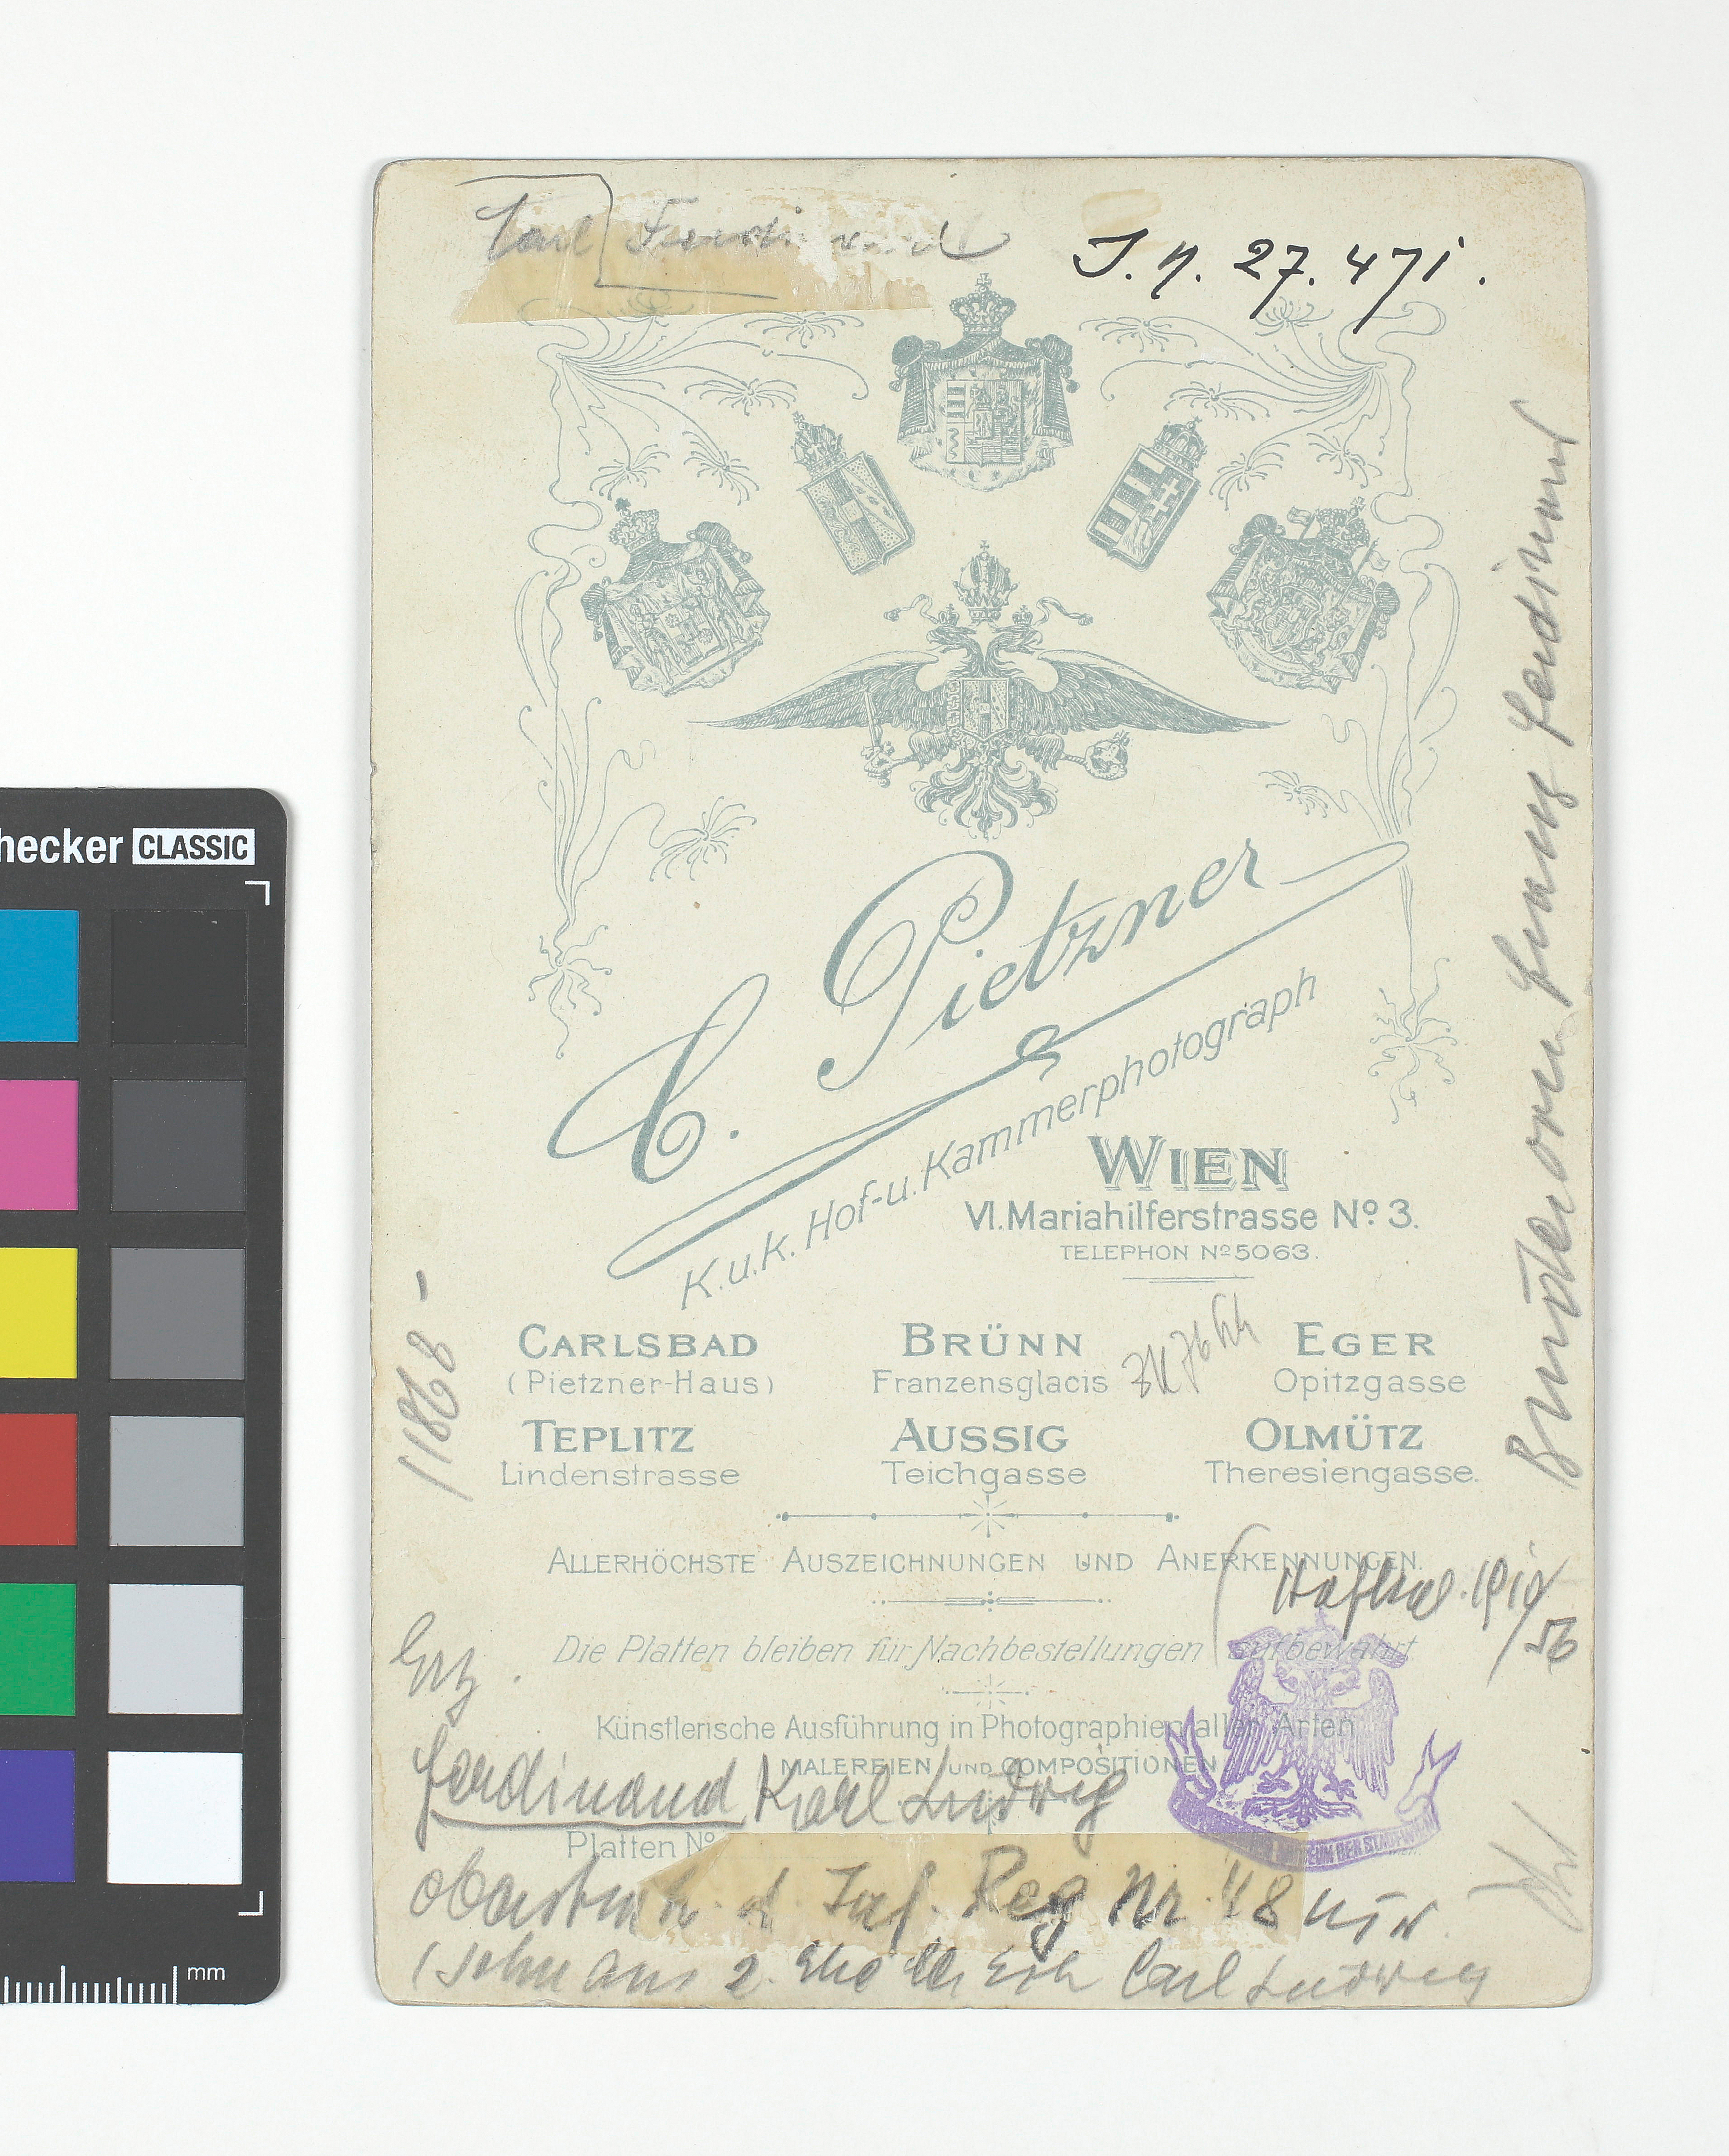 hecker CLASSIC
Carl Ferdinand
J. N. 27.471.
C. Pietzner
K.u.k. Hof-u. Kammerphotograph
WIEN
VI. Mariahilferstrasse Nº 3.
TELEPHON Nº 5063.
CARLSBAD
(Pietzner-Haus)
BRÜNN
Franzensglacis
EGER
Opitzgasse
TEPLITZ
Lindenstrasse
AUSSIG
Teichgasse
OLMÜTZ
Theresiengasse.
11868 –
Bruder von Franz Ferdinand
ALLERHÖCHSTE AUSZEICHNUNGEN UND ANERKENNUNGEN.
Die Platten bleiben für Nachbestellungen aufbewahrt
Erz.
Künstlerische Ausführung in Photographien aller Arten
MALEREIEN UND COMPOSITIONEN
Ferdinand Karl Ludwig
Platten Nº
MUSEUM DER STADT WIEN
d. Inf. Reg Nr. 48
(Sohn aus 2. Ehe Carl Ludwig
mm